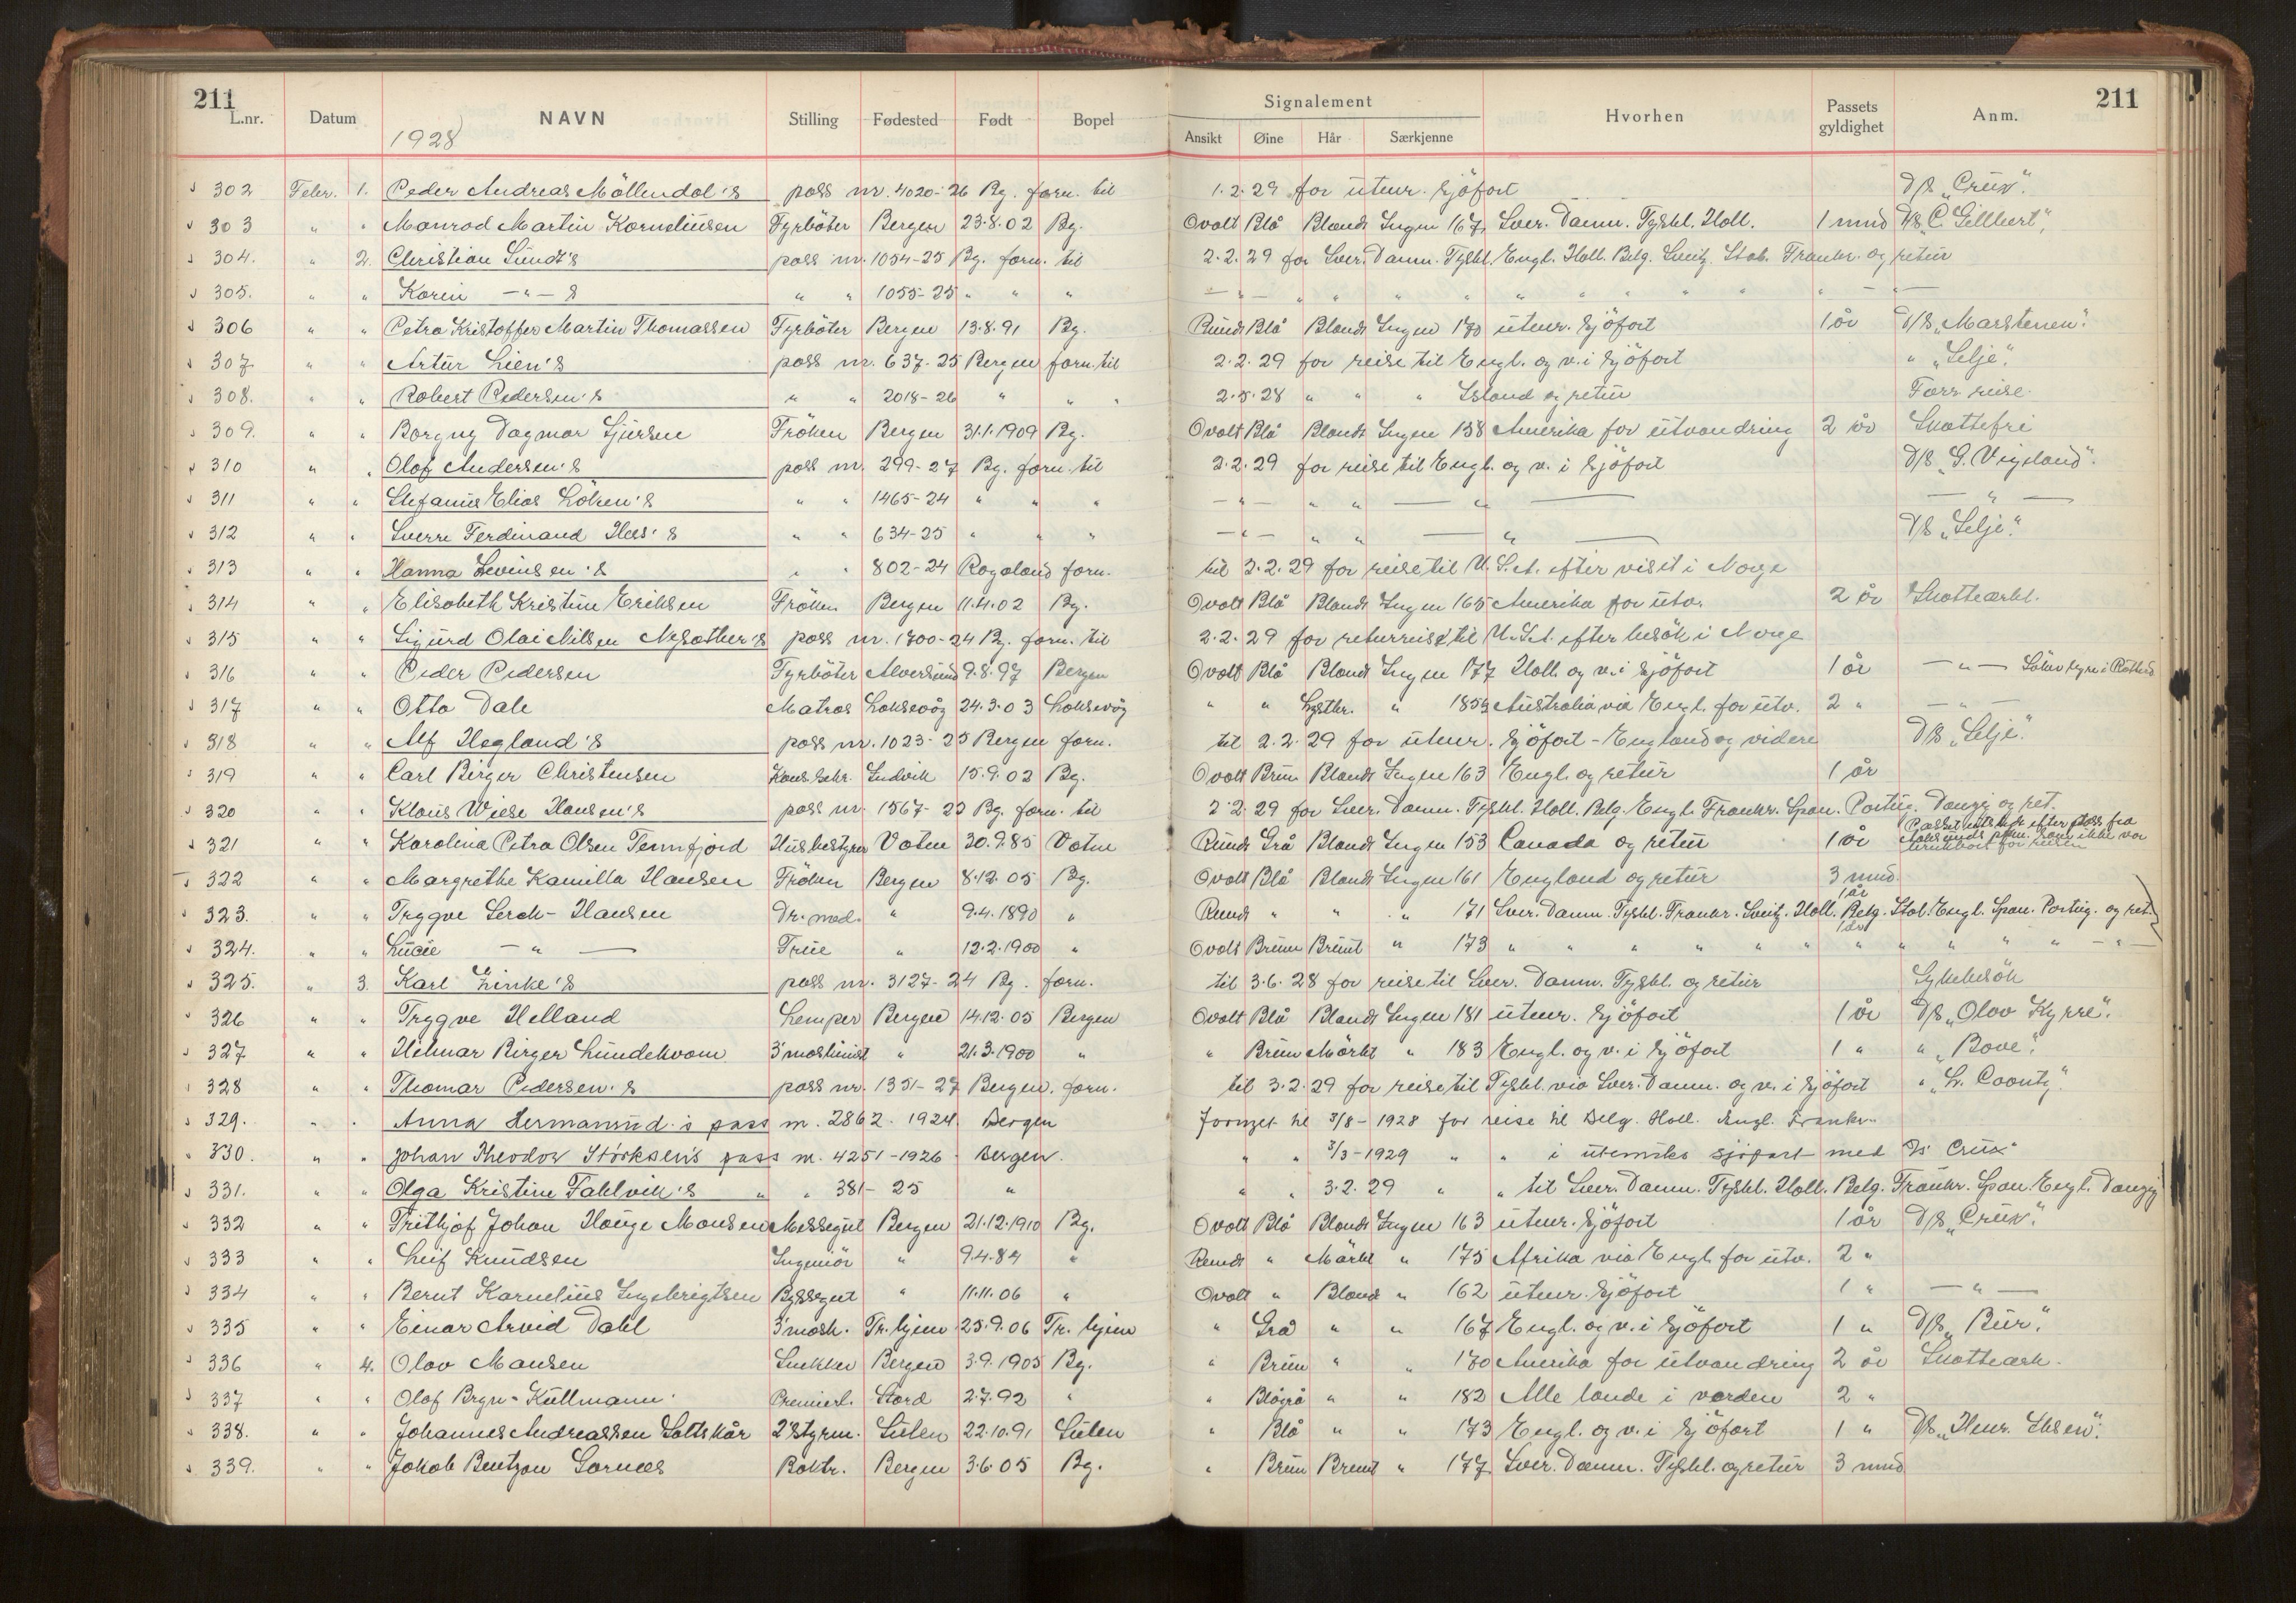 211 211
L.nr. Datum NAVN Stilling Fødested Født Bopel Signalement Hvorhen Passets gyldighet Anm.
Ansikt Øine Hår Særkjenne
1928
302 Febr. 1. Peder Andreas Möllendal's pass nr. 4020-26 Bg. forn. til 1.2.29 for utenr. sjöfart D/S „Crux".
303 " " Monrad Martin Korneliusen Fyrböter Bergen 23.8.02 Bg. Ovalt Blå Blondt Ingen 167 Sver. Danm. Tyskl. Holl. 1 mnd D/S „C. Gillbert",
304. " 2. Christian Sundt's pass nr. 1054-25 Bg. forn. til 2.2.29 for Sver. Danm. Tyskl. Engl. Holl. Belg. Sveitz. Ital. Frankr. og retur
305. " " Karin —"— s " " 1055-25 " " " —"— " " " " " " " " " " —"—
306 " " Petra Kristoffer Martin Thomassen Fyrböter Bergen 13.8.91 Bg. Rundt Blå Blondt Ingen 170 utenr. sjöfart 1 år D/S „Marstenen".
307 " " Artur Lien's pass nr. 637-25 Bergen forn. til 2.2.29 for reise til Engl. og v. i sjöfart " „Selje".
308. " " Robert Pedersen's " " 2018-26 " " " 2.5.28 " " " Island og retur Forr. reise.
309. " " Borgny Dagmar Sjursen Fröken Bergen 31.1.1909 Bg. Ovalt Blå Blondt Ingen 158 Amerika for utvandring 2 år Skattefri
310 " " Olaf Andersen's pass nr. 299-27 Bg. forn. til 2.2.29 for reise til Engl. og v. i sjöfart D/S „G. Vigeland".
311 " " Stefanus Elias Löken's " " 1465-24 " " " —"— " " — " — — " —
312 " " Sverre Ferdinand Hus's " " 634-25 " " " —"— " " — " — D/S „Selje".
313 " " Hanna Levinsen's " " 802-24 Rogaland forn. til 2.2.29 for reise til U.S.A. efter visit i Norge
314 " " Elisabeth Kristine Eriksen Fröken Bergen 11.4.02 Bg. Ovalt Blå Blondt Ingen 165 Amerika for utv. 2 år Skatteerkl.
315 " " Sigurd Olai Nilsen Nesæther's pass nr. 1700-24 Bg. forn. til 2.2.29 for returreise til U.S.A. efter besök i Norge
316 " " Peder Pedersen Fyrböter Alversund 9.8.97 Bergen Ovalt Blå Blondt Ingen 177 Holl. og v. i sjöfart 1 år —"—
317 " " Otto Dale Matros Laksevåg 24.3.03 Laksevåg " " Lystbr. " 185½ Australia via Engl. for utv. 2 " —"—
318 " " Alf Hegland's pass nr. 1023-25 Bergen forn. til 2.2.29 for utenr. sjöfart - England og videre D/S „Selje".
319 " " Carl Birger Christensen Kons.sekr. Ludvik 15.9.02 Bg. Ovalt Brun Blondt Ingen 163 Engl. og retur 1 år
320 " " Klaus Wiese Hansen's pass nr. 1567-23 Bg. forn. til 2.2.29 for Sver. Danm. Tyskl. Holl. Belg. Engl. Frankr. Span. Portug. Danzig og ret.
321 " " Karolina Petra Olsen Tennfjord Husbestyrer Vatne 30.9.85 Vatne Rundt Grå Blondt Ingen 153 Canada og retur 1 år Passet utstedt efter pass fra Aalesunds pkm. som ikke var brukbart for reisen
322 " " Margrethe Kamilla Hansen Fröken Bergen 8.12.05 Bg. Ovalt Blå Blondt Ingen 161 England og retur 3 mnd.
323. " " Trygve Lerch-Hansen Dr. med. " 9.4.1890 " Rundt " " " 171 Sver. Danm. Tyskl. Frankr. Sveitz. Holl. Belg. Ital. Engl. Span. Portug. og ret. 1 år
324. " " Lucie — " — Frue " 12.2.1900 " Ovalt Brune Brunt " 173 " " " " " " " " " " " —"— 1 år
325. " 3. Karl Zinke's pass nr. 3127-24 Bg. forn. til 3.6.28 for reise til Sver. Danm. Tyskl. og retur Sykebesök
326 " " Trygve Helland Lemper Bergen 14.12.05 Bergen Ovalt Blå Blondt Ingen 181 utenr. sjöfart 1 år D/S „Olav Kyrre".
327 " " Hilmar Birger Lundekvam 3' maskinist " 21.3.1900 " " Brun Mörkt " 183 Engl. og v. i sjöfart 1 " " „Bove".
328 " " Thomar Pedersen's pass nr. 1351-27 Bergen. forn. til 3.2.29 for reise til Tyskl. via Sver. Danm. og v. i sjöfart "
329. " " Anna Hermanrud's pass nr. 2862. 1924. Bergen fornyet til 3/8-1928 for reise til Belg. Holl. Engl. Frankr.
330. " " Johan Theodor Störksen's pass nr. 4251-1926. Bergen. " " 3/3-1929 " " i utenriks sjöfart med D/S Crux"
331. " " Olga Kristine Fahlvik's " " 381-25 " " " 3.2.29 " " til Sver. Danm. Tyskl. Holl. Belg. Frankr. Span. Engl. Danzig
332 " " Frithjof Johan Hauge Monsen Messegut Bergen 21.12.1910 Bg. Ovalt Blå Blondt Ingen 163 utenr. sjöfart 1 år D/S „Crux".
333 " " Leif Knudsen Ingeniör " 9.4.84 " Rundt " Mörkt " 175 Afrika via Engl. for utv. 2 "
334 " " Bernt Kornelius Ingebrigtsen Byssegut " 11.11.06 " Ovalt " Blondt " 162 utenr. sjöfart 1 " —"—
335 " " Einar Arvid Dahl 3' mask. Tr.hjem 25.9.06 Tr.hjem " Grå " " 167 Engl. og v. i sjöfart 1 " D/S „Bur".
336 " 4. Olav Mansen Snekker Bergen 3.9.1905 Bg. " Brun " " 170 Amerika for utvandring 2 år Skatteerk.
337 " " Olaf Bryn-Kullmann Premierl. Stord 2.7.92 " " Blågrå " " 182 Alle lande i verden 2 "
338. " " Johannes Andreassen Saltskår 2' Styrm. Sulen 22.10.91 Sulen " Blå " " 173 Engl. og v. i sjöfart 1 " D/S „Henr. Ibsen".
339. " " Jakob Bentzon Sornes Boktr. Bergen 3.6.05 Bg. " Brun Brunt " 177 Sver. Danm. Tyskl. og retur 3 mnd